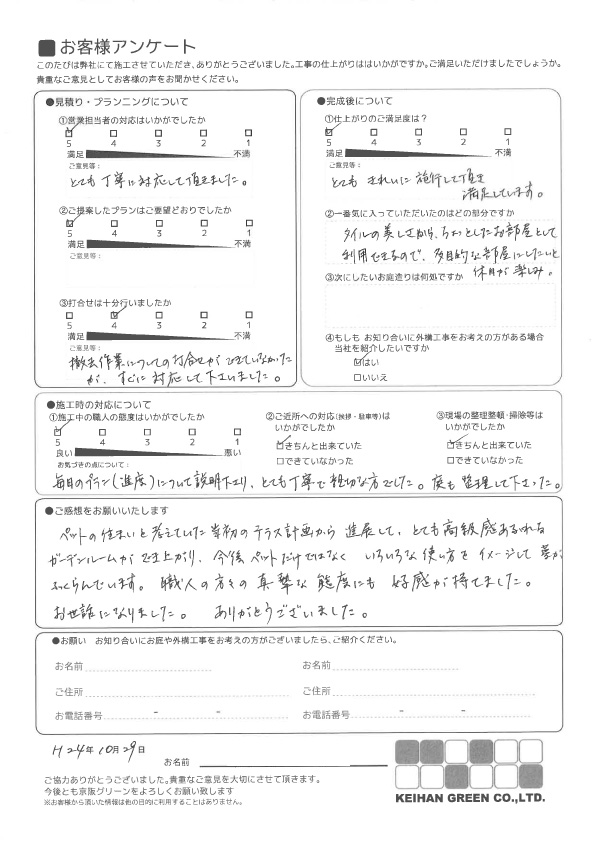 お客様アンケート
このたびは弊社にて施工させていただき、ありがとうございました。工事の仕上がりははいかがですか。ご満足いただけましたでしょうか。
貴重なご意見としてお客様の声をお聞かせください。
●見積り・プランニングについて
①営業担当者の対応はいかがでしたか
5 4 3 2 1
満足 不満
ご意見等：
とても丁寧に対応して頂きました。
②ご提案したプランはご要望どおりでしたか
5 4 3 2 1
満足 不満
ご意見等：
③打合せは十分行いましたか
5 4 3 2 1
満足 不満
ご意見等：
撤去作業についての打合せができていなかった
が、すぐに対応して下さいました。
●完成後について
①仕上がりのご満足度は？
5 4 3 2 1
満足 不満
ご意見等：
とても きれいに施行して頂き
満足しています。
②一番気に入っていただいたのはどの部分ですか
タイルの美しさから、ちょっとしたお部屋として
利用できるので、多目的な部屋にしたいと
休日が楽しみ。
③次にしたいお庭造りは何処ですか
④もしも お知り合いに外構工事をお考えの方がある場合
当社を紹介したいですか
はい
いいえ
●施工時の対応について
①施工中の職人の態度はいかがでしたか
5 4 3 2 1
良い 悪い
お気づきの点について：
②ご近所への対応(挨拶・駐車等)は
いかがでしたか
きちんと出来ていた
できていなかった
③現場の整理整頓・掃除等は
いかがでしたか
きちんと出来ていた
できていなかった
毎日のプラン(進度)について説明下さり、とても丁寧で親切な方でした。度も整理して下さった。
●ご感想をお願いいたします
ペットの住まいと考えていた当初のテラス計画から 進展して、とても高級感あふれる
ガーデンルームができ上がり、今後ペットだけではなく いろいろな使い方をイメージして夢が
ふくらんでいます。職人の方々の真摯な態度にも 好感が持てました。
お世話になりました。 ありがとうございました。
●お願い お知り合いにお庭や外構工事をお考えの方がございましたら、ご紹介ください。
お名前 お名前
ご住所 ご住所
お電話番号 - - お電話番号 - -
H24年10月29日
お名前
ご協力ありがとうございました。貴重なご意見を大切にさせて頂きます。
今後とも京阪グリーンをよろしくお願い致します
※お客様から頂いた情報は他の目的に利用することはありません。
KEIHAN GREEN CO.,LTD.